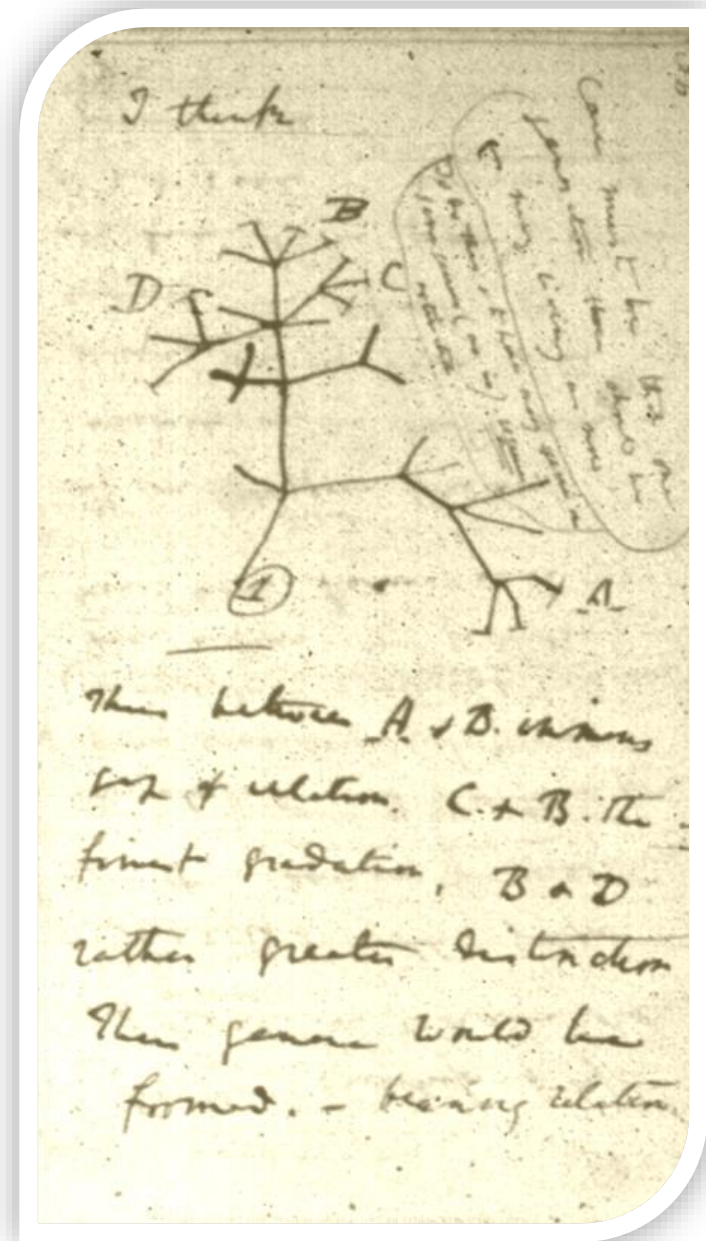 I think
B
C
D
A
1
Case must be that one
generation then should be
as many living as now
To do this & to have many species in
same genus (as is) requires
extinction
Thus between A & B. immens
gap of relation. C & B. the
finest gradation, B & D
rather greater distinction
Thus genera would be
formed. — bearing relation